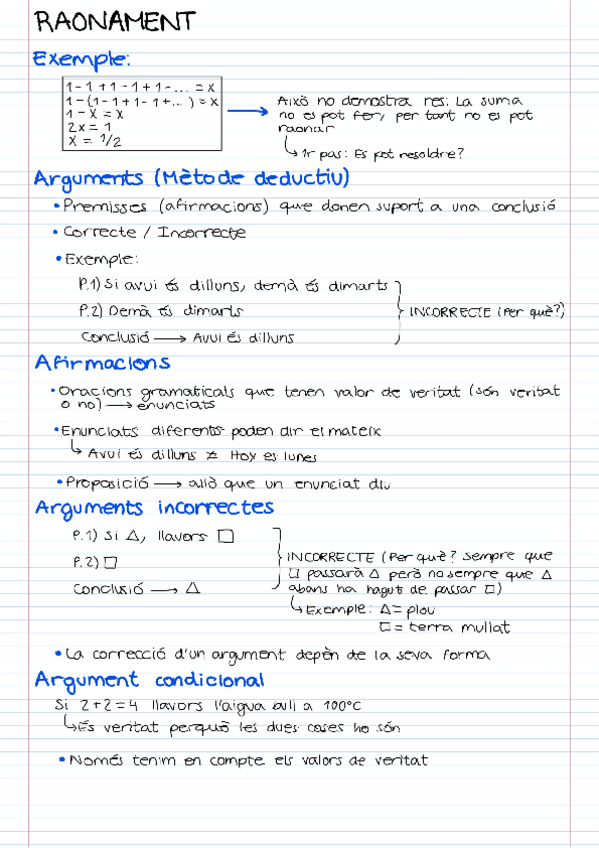 RAONAMENT
Exemple:
1-1+1-1+1-... = x
1-(1-1+1-1+...) = x
1-x = x
2x = 1
x = 1/2
Això no demostra res: La suma
no es pot fer, per tant no es pot
raonar
↳ 1r pas: Es pot resoldre?
Arguments (Mètode deductiu)
• Premisses (afirmacions) que donen suport a una conclusió
• Correcte / Incorrecte
• Exemple:
P.1) Si avui és dilluns, demà és dimarts
P.2) Demà és dimarts
Conclusió → Avui és dilluns
INCORRECTE (Per què?)
Afirmacions
• Oracions gramaticals que tenen valor de veritat (són veritat
o no) → enunciats
• Enunciats diferents poden dir el mateix
↳ Avui és dilluns ≠ Hoy es lunes
• Proposició → allò que un enunciat diu
Arguments incorrectes
P.1) Si △, llavors □
P.2) □
Conclusió → △
INCORRECTE (Per què? Sempre que
□ passarà △ però no sempre que △
abans ha hagut de passar □)
↳ Exemple: △ = plou
□ = terra mullat
• La correcció d'un argument depèn de la seva forma
Argument condicional
Si 2+2=4 llavors l'aigua bull a 100°C
↳ És veritat perquè les dues coses ho són
• Només tenim en compte els valors de veritat